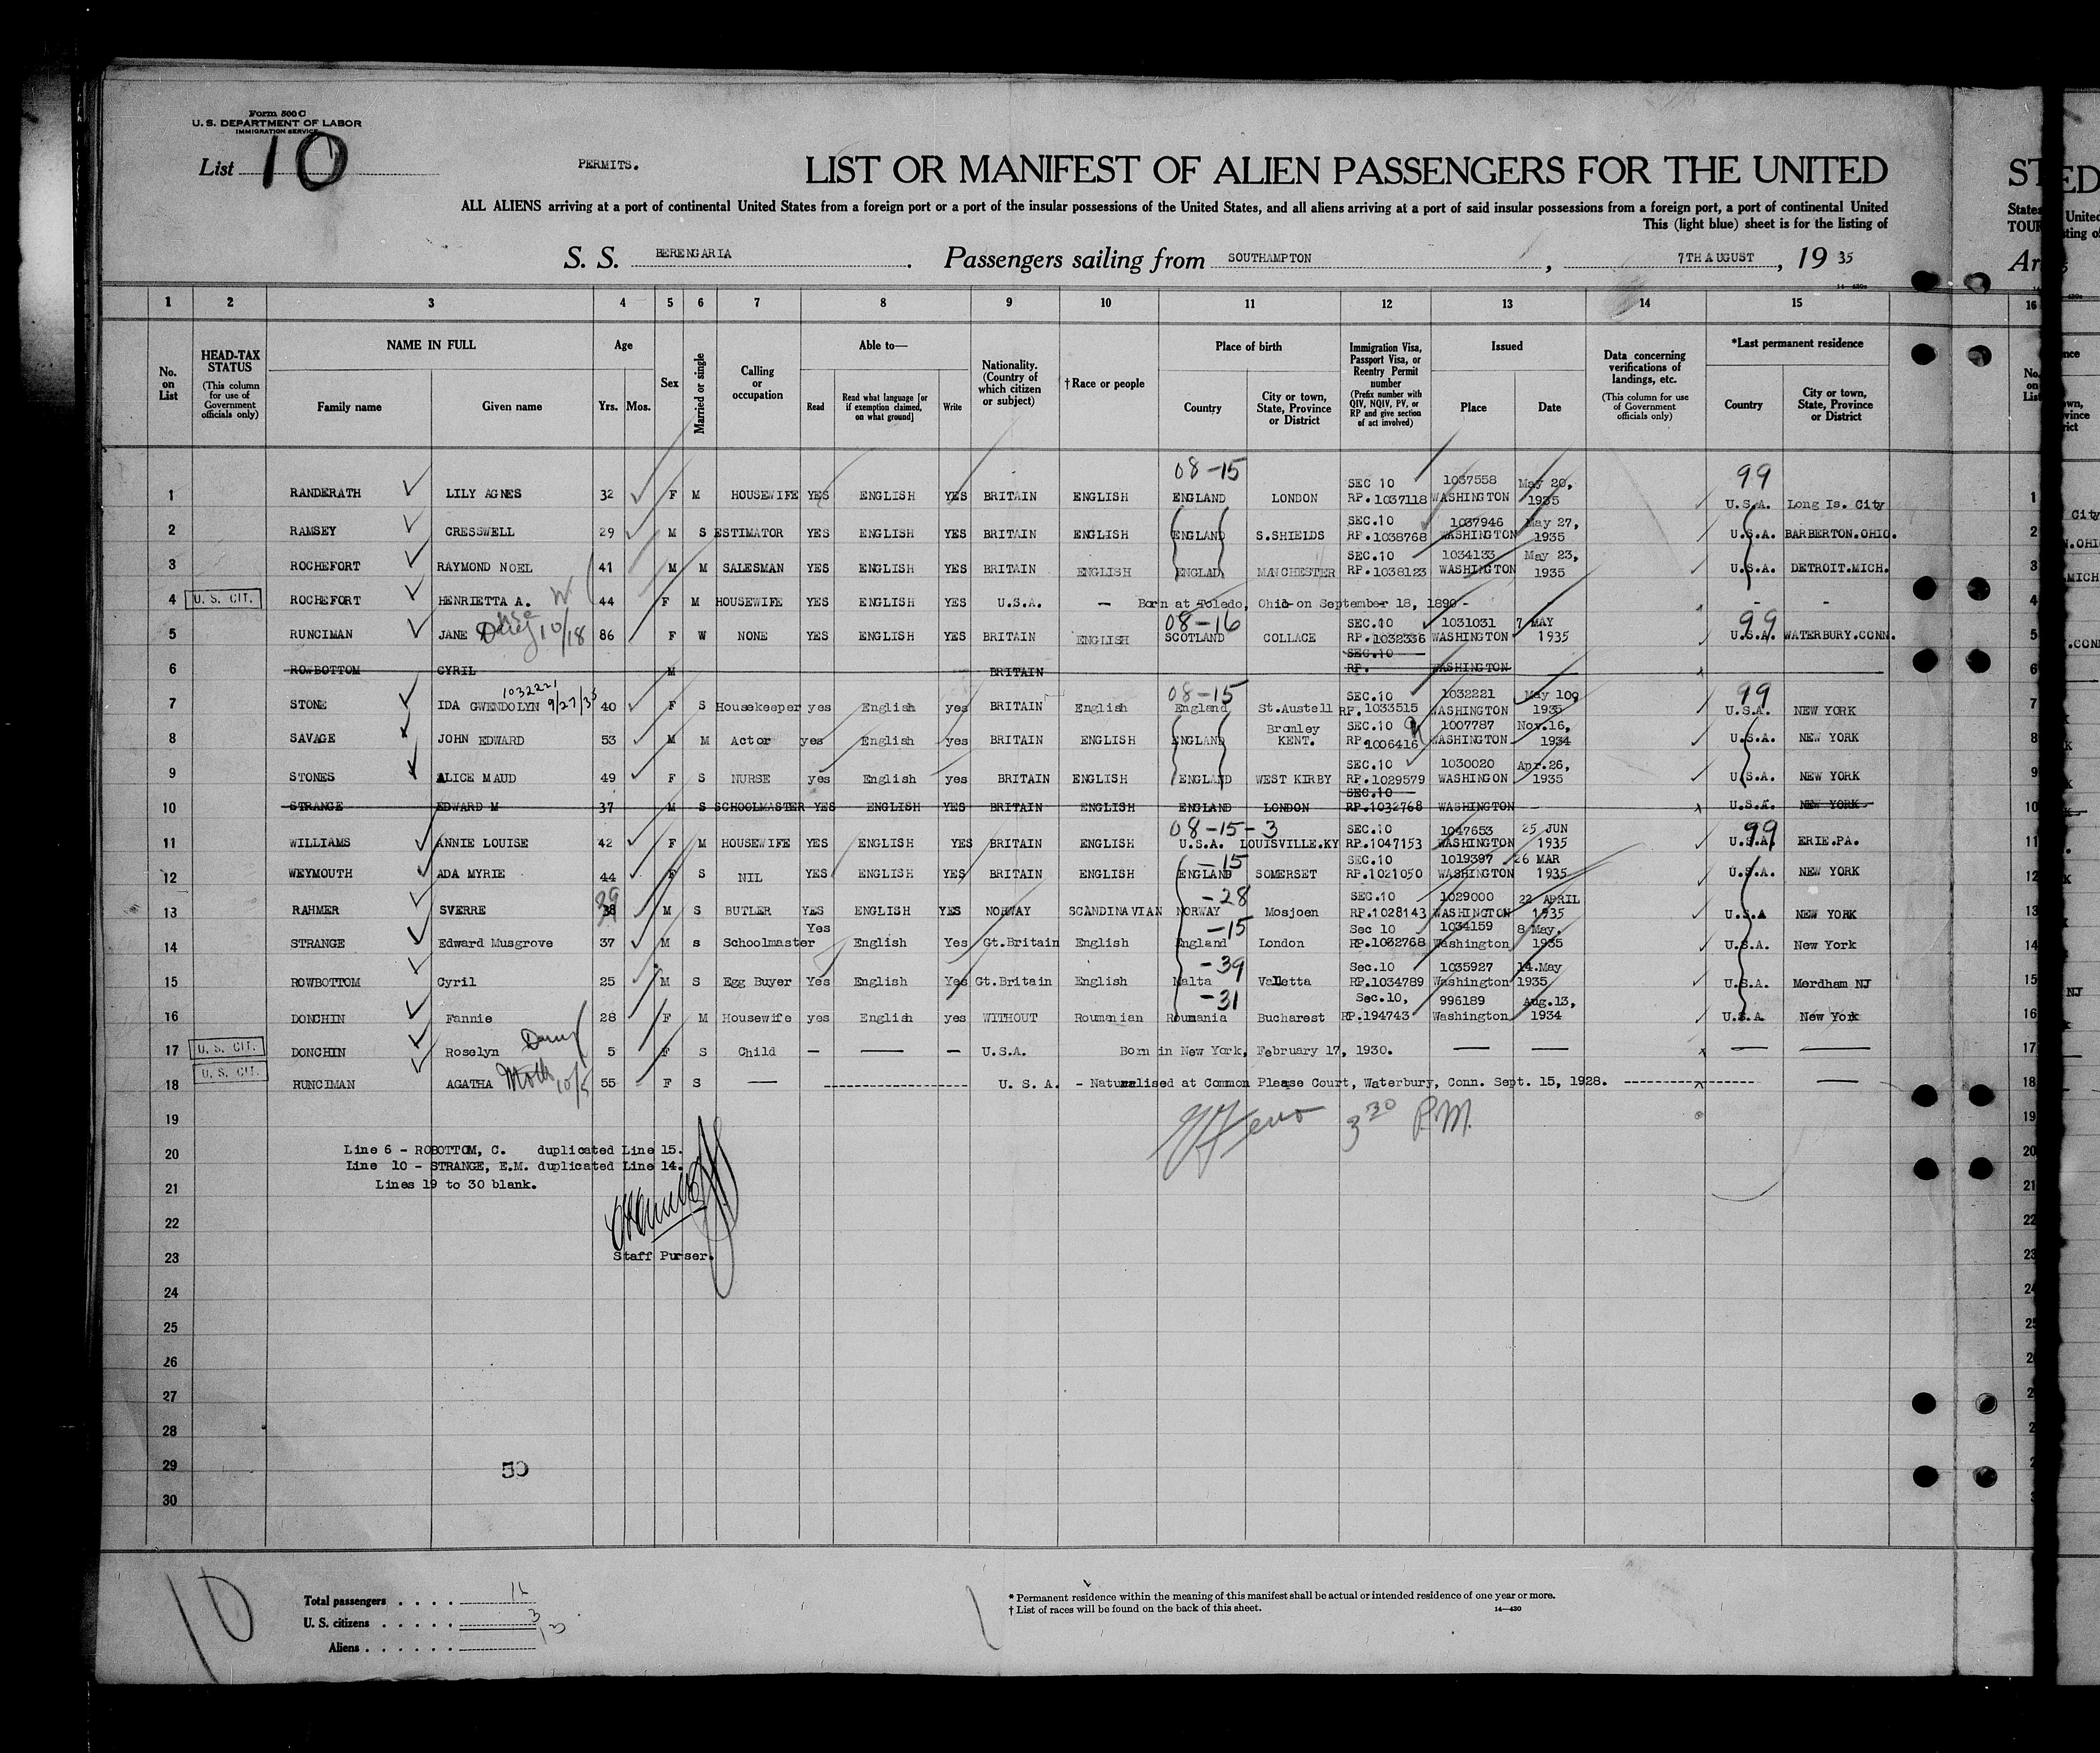 Form 500 C
U. S. DEPARTMENT OF LABOR
IMMIGRATION SERVICE
List 10
PERMITS.
LIST OR MANIFEST OF ALIEN PASSENGERS FOR THE UNITED
ALL ALIENS arriving at a port of continental United States from a foreign port or a port of the insular possessions of the United States, and all aliens arriving at a port of said insular possessions from a foreign port, a port of continental United
This (light blue) sheet is for the listing of
S. S. BERENGARIA. Passengers sailing from SOUTHAMPTON, 7TH AUGUST, 19 35
1 2 3 4 5 6 7 8 9 10 11 12 13 14 15 16
No. on List
HEAD-TAX STATUS (This column for use of Government officials only)
NAME IN FULL
Family name Given name
Age
Yrs. Mos.
Sex
Married or single
Calling or occupation
Able to—
Read Read what language [or if exemption claimed, on what ground] Write
Nationality. (Country of which citizen or subject)
†Race or people
Place of birth
Country City or town, State, Province or District
Immigration Visa, Passport Visa, or Reentry Permit number (Prefix number with QIV, NQIV, PV, or RP and give section of act involved)
Issued
Place Date
Data concerning verifications of landings, etc. (This column for use of Government officials only)
*Last permanent residence
Country City or town, State, Province or District
08-15 99
1 RANDERATH LILY AGNES 32 F M HOUSEWIFE YES ENGLISH YES BRITAIN ENGLISH ENGLAND LONDON SEC 10 RP.1037118 1037558 WASHINGTON May 20, 1935 U.S.A. Long Is. City
2 RAMSEY CRESSWELL 29 M S ESTIMATOR YES ENGLISH YES BRITAIN ENGLISH ENGLAND S.SHIELDS SEC.10 RP.1038768 1037946 WASHINGTON May 27, 1935 U.S.A. BARBERTON.OHIO.
3 ROCHEFORT RAYMOND NOEL 41 M M SALESMAN YES ENGLISH YES BRITAIN ENGLISH ENGLAD MANCHESTER SEC.10 RP.1038123 1034133 WASHINGTON May 23, 1935 U.S.A. DETROIT.MICH.
4 U. S. CIT. ROCHEFORT HENRIETTA A. W 44 F M HOUSEWIFE YES ENGLISH YES U.S.A. — Born at Toledo, Ohio on September 18, 1890 - - - -
08-16 99
5 RUNCIMAN JANE 10/18 86 F W NONE YES ENGLISH YES BRITAIN ENGLISH SCOTLAND COLLACE SEC.10 RP.1032336 1031031 WASHINGTON 7 MAY 1935 U.S.A. WATERBURY.CONN.
6 ROWBOTTOM CYRIL M BRITAIN SEC.10 RP. WASHINGTON
08-15 99
7 STONE IDA GWENDOLYN 1032221 9/27/35 40 F S Housekeeper yes English yes BRITAIN English England St.Austell SEC.10 RP.1033515 1032221 WASHINGTON May 10, 1935 U.S.A. NEW YORK
8 SAVAGE JOHN EDWARD 53 M M Actor yes English yes BRITAIN ENGLISH ENGLAND Bromley KENT. SEC.10 RP.1006416 1007787 WASHINGTON Nov.16, 1934 U.S.A. NEW YORK
9 STONES ALICE MAUD 49 F S NURSE yes English yes BRITAIN ENGLISH ENGLAND WEST KIRBY SEC.10 RP.1029579 1030020 WASHINGON Apr.26, 1935 U.S.A. NEW YORK
10 STRANGE EDWARD M 37 M S SCHOOLMASTER YES ENGLISH YES BRITAIN ENGLISH ENGLAND LONDON SEC.10 RP.1032768 WASHINGTON U.S.A. NEW YORK
08-15-3 99
11 WILLIAMS ANNIE LOUISE 42 F M HOUSEWIFE YES ENGLISH YES BRITAIN ENGLISH U.S.A. LOUISVILLE.KY SEC.10 RP.1047153 1047653 WASHINGTON 25 JUN 1935 U.S.A. ERIE.PA.
-15
12 WEYMOUTH ADA MYRIE 44 F S NIL YES ENGLISH YES BRITAIN ENGLISH ENGLAND SOMERSET SEC.10 RP.1021050 1019397 WASHINGTON 26 MAR 1935 U.S.A. NEW YORK
-28
13 RAHMER SVERRE 38 39 M S BUTLER YES ENGLISH YES NORWAY SCANDINAVIAN NORWAY Mosjoen SEC.10 RP.1028143 1029000 WASHINGTON 22 APRIL 1935 U.S.A NEW YORK
-15
14 STRANGE Edward Musgrove 37 M s Schoolmaster Yes English Yes Gt.Britain English England London Sec 10 RP.1032768 1034159 Washington 8 May. 1935 U.S.A. New York
-39
15 ROWBOTTOM Cyril 25 M S Egg Buyer Yes English Yes Gt.Britain English Malta Valletta Sec.10 RP.1034789 1035927 Washington 14.May 1935 U.S.A. Merdham NJ
-31
16 DONCHIN Fannie 28 F M Housewife yes English yes WITHOUT Roumanian Roumania Bucharest Sec.10, RP.194743 996189 Washington Aug.13, 1934 U.S.A New York
17 U. S. CIT. DONCHIN Roselyn 5 F S Child — — — U.S.A. Born in New York, February 17, 1930. — — — —
18 U. S. CIT. RUNCIMAN AGATHA 10/5 55 F S — U. S. A. - Naturalised at Common Please Court, Waterbury, Conn. Sept. 15, 1928. —
19
3 30 P.M.
20 Line 6 - ROBOTTOM, C. duplicated Line 15.
Line 10 - STRANGE, E.M. duplicated Line 14.
21 Lines 19 to 30 blank.
22
23 Staff Purser.
24
25
26
27
28
29 50
30
10
Total passengers
U. S. citizens 3
Aliens 13
* Permanent residence within the meaning of this manifest shall be actual or intended residence of one year or more.
† List of races will be found on the back of this sheet.
14—430